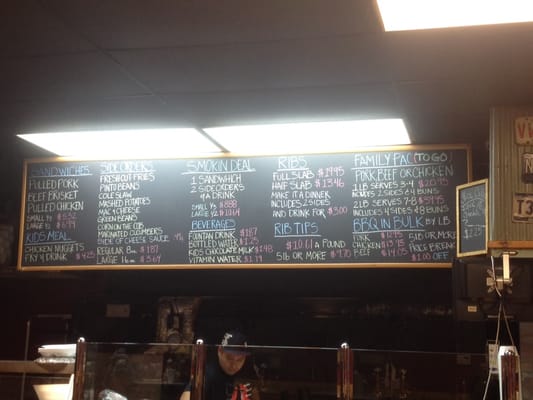 SANDWICHES
PULLED PORK
BEEF BRISKET
PULLED CHICKEN
SMALL
LARGE
KIDS MEAL
CHICKEN NUGGETS
FRY & DRINK
SIDE ORDERS
FRESH CUT FRIES
PINTO BEANS
COLE SLAW
MASHED POTATOES
MAC & CHEESE
GREEN BEANS
CORN ON THE COB
MARINATED CUCUMBERS
SIDE OF CHEESE SAUCE
REGULAR 8oz. $1.87
LARGE 16oz $3.69
SMOKIN DEAL
1 SANDWICH
2 SIDE ORDERS
& A DRINK
SMALL $8.88
LARGE $10.14
BEVERAGES
FOUNTAIN DRINK $1.87
BOTTLED WATER $1.25
KIDS CHOCOLATE MILK
VITAMIN WATER
RIBS
FULL SLAB $19.95
HALF SLAB $13.46
MAKE IT A DINNER
INCLUDES 2 SIDES
AND DRINK FOR $3.00
RIB TIPS
$10.61 A POUND
5LB OR MORE $9.70
FAMILY PAC (TO GO)
PORK, BEEF OR CHICKEN
1 LB SERVES 3-4 $20.95
INCLUDES 2 SIDES & 4 BUNS
2 LB SERVES 7-8
INCLUDES 4 SIDES & 8 BUNS
BBQ IN BULK BY LB
PORK $12.95
CHICKEN $13.95
BEEF $14.05
5LB OR MORE
PRICE BREAK
$1.00 OFF